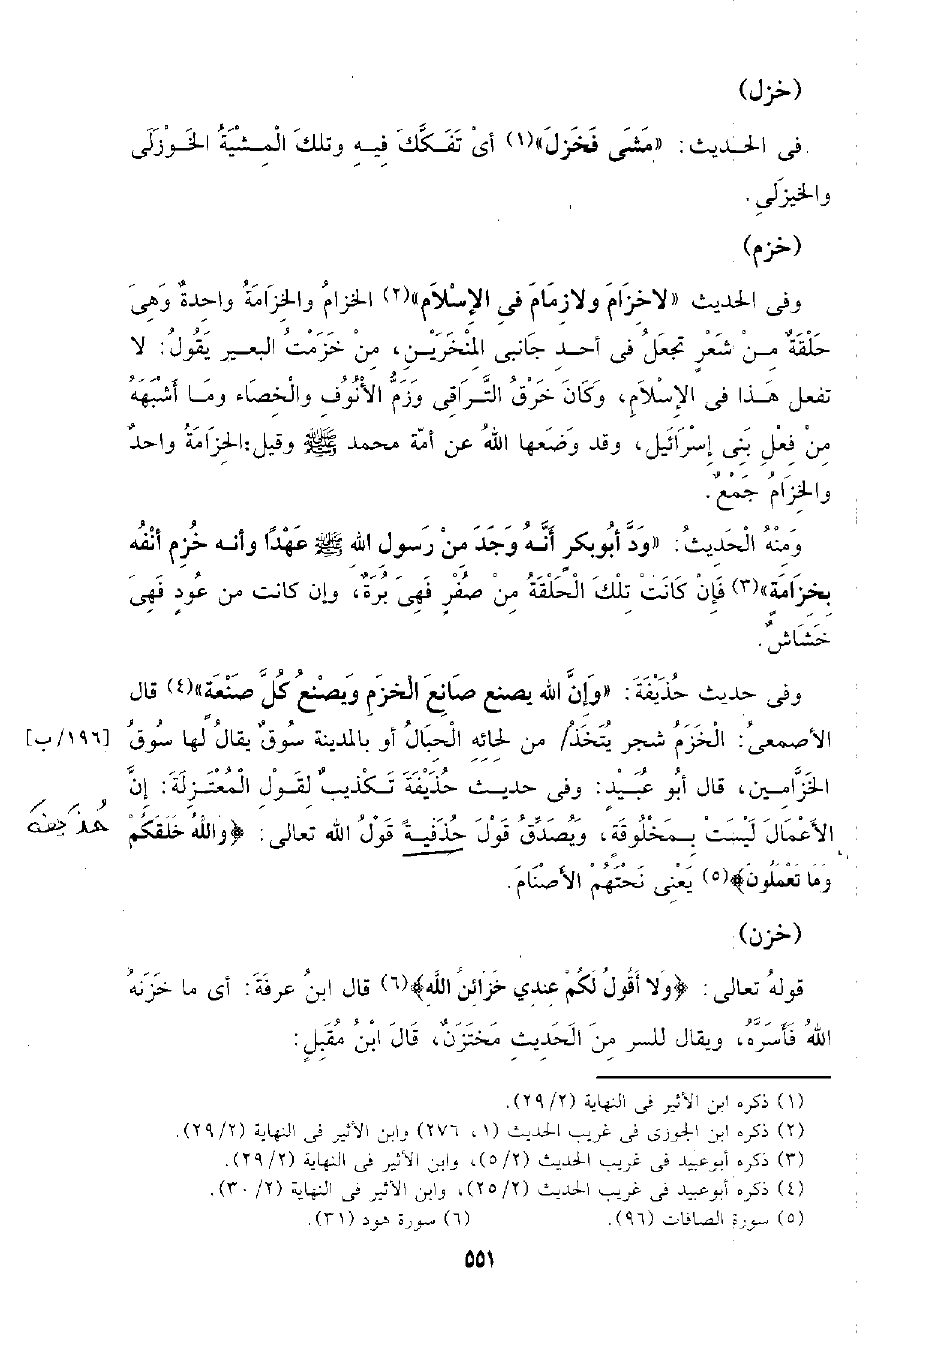 (خزل)
فى الحديث: «مَشَى فَخَزلَ»(١) أىْ تَفَكَّكَ فيه وتلكَ الْمِشْيَةُ الخَوْزلَى
والخيزلَى.
(خزم)
وفى الحديث «لاخِزَامَ ولازِمَامَ فى الإسْلَامِ»(٢) الخزامُ والخِزَامَةُ واحِدةٌ وَهِىَ
حَلْقَةٌ مِنْ شَعْرٍ تجعَلُ فى أحدِ جَانبى المنْخَرَيْنِ، مِنْ خَزَمْتُ البعير يَقُولُ: لا
تفعل هَذا فى الإسْلَامِ، وَكَانَ خَرْقُ التَّراقِى وَزَمُّ الأنُوُفِ والْخصَاء ومَا أَشْبَهَهُ
مِنْ فِعْلِ بَنِى إسْرَائيلَ، وقد وَضَعها اللهُ عن أمَّة محمد ﷺ وقيل: الخزَامَةُ واحدٌ
والخِزَامُ جَمْعٌ.
وَمَنْهُ الْحَديثُ: «وَدَّ أبُوبكر أنَّهُ وَجَدَ مِنْ رَسول الله ﷺ عَهْدًا وأنه خُزِم أنْفُه
بِخزَامَةٍ»(٣) فَإنْ كَانَتْ تِلْكَ الْحَلْقَةُ مِنْ صُفْرٍ فَهِىَ بُرَةٌ، وإن كانت من عُودٍ فَهِىَ
خَشَاشٌ.
وفى حديث حُذَيْفَةَ: «وَإنَّ الله يصنع صَانِعَ الْخزَمِ وَيصْنعُ كُلَّ صَنْعَة»(٤) قال
الأصمعىُّ: الْخَزَمُ شجر يُتَّخَذُ/ من لحائِه الْحِبَالُ أو بالمدينة سُوقٌ يقالُ لَها سُوقُ
[١٩٦/ب]
الخَزَّامِين، قال أبُو عُبَيْد: وفى حديث حُذَيْفَةَ تَكْذيبٌ لقَوْلِ الْمُعْتَزلَة: إنَّ
الأعْمَالَ لَيسَتْ بِمَخْلُوقَة، ويُصَدِّقُ قَولَ حُذَفيةَ قَولُ الله تعالى: ﴿وَاللَّهُ خَلَقَكُمْ
حُذَيفة
وَمَا تَعْمَلُونَ﴾(٥) يَعْنِى نَحْتَهُمْ الأصْنَامَ.
(خزن)
قولهُ تعالى: ﴿وَلا أَقُولُ لَكُمْ عِندِي خَزَائِنُ اللَّهِ﴾(٦) قال ابنُ عرفَةَ: أى ما خَزَنَهُ
اللهُ فَأسَرَّهُ، ويقال للسر مِنَ الَحَديثِ مَختَزَنٌ، قَالَ ابْنُ مُقْبَلٍ:
(١) ذكره ابن الأثير فى النهاية (٢٩/٢).
(٢) ذكره ابن الجوزى فى غريب الحديث (١، ٢٧٦) وابن الأثير فى النهاية (٢٩/٢).
(٣) ذكره أبوعبيد فى غريب الحديث (٥/٢)، وابن الأثير فى النهاية (٢٩/٢).
(٤) ذكره أبوعبيد فى غريب الحديث (٢٥/٢)، وابن الأثير فى النهاية (٣٠/٢).
(٥) سورة الصافات (٩٦). (٦) سورة هود (٣١).
٥٥١